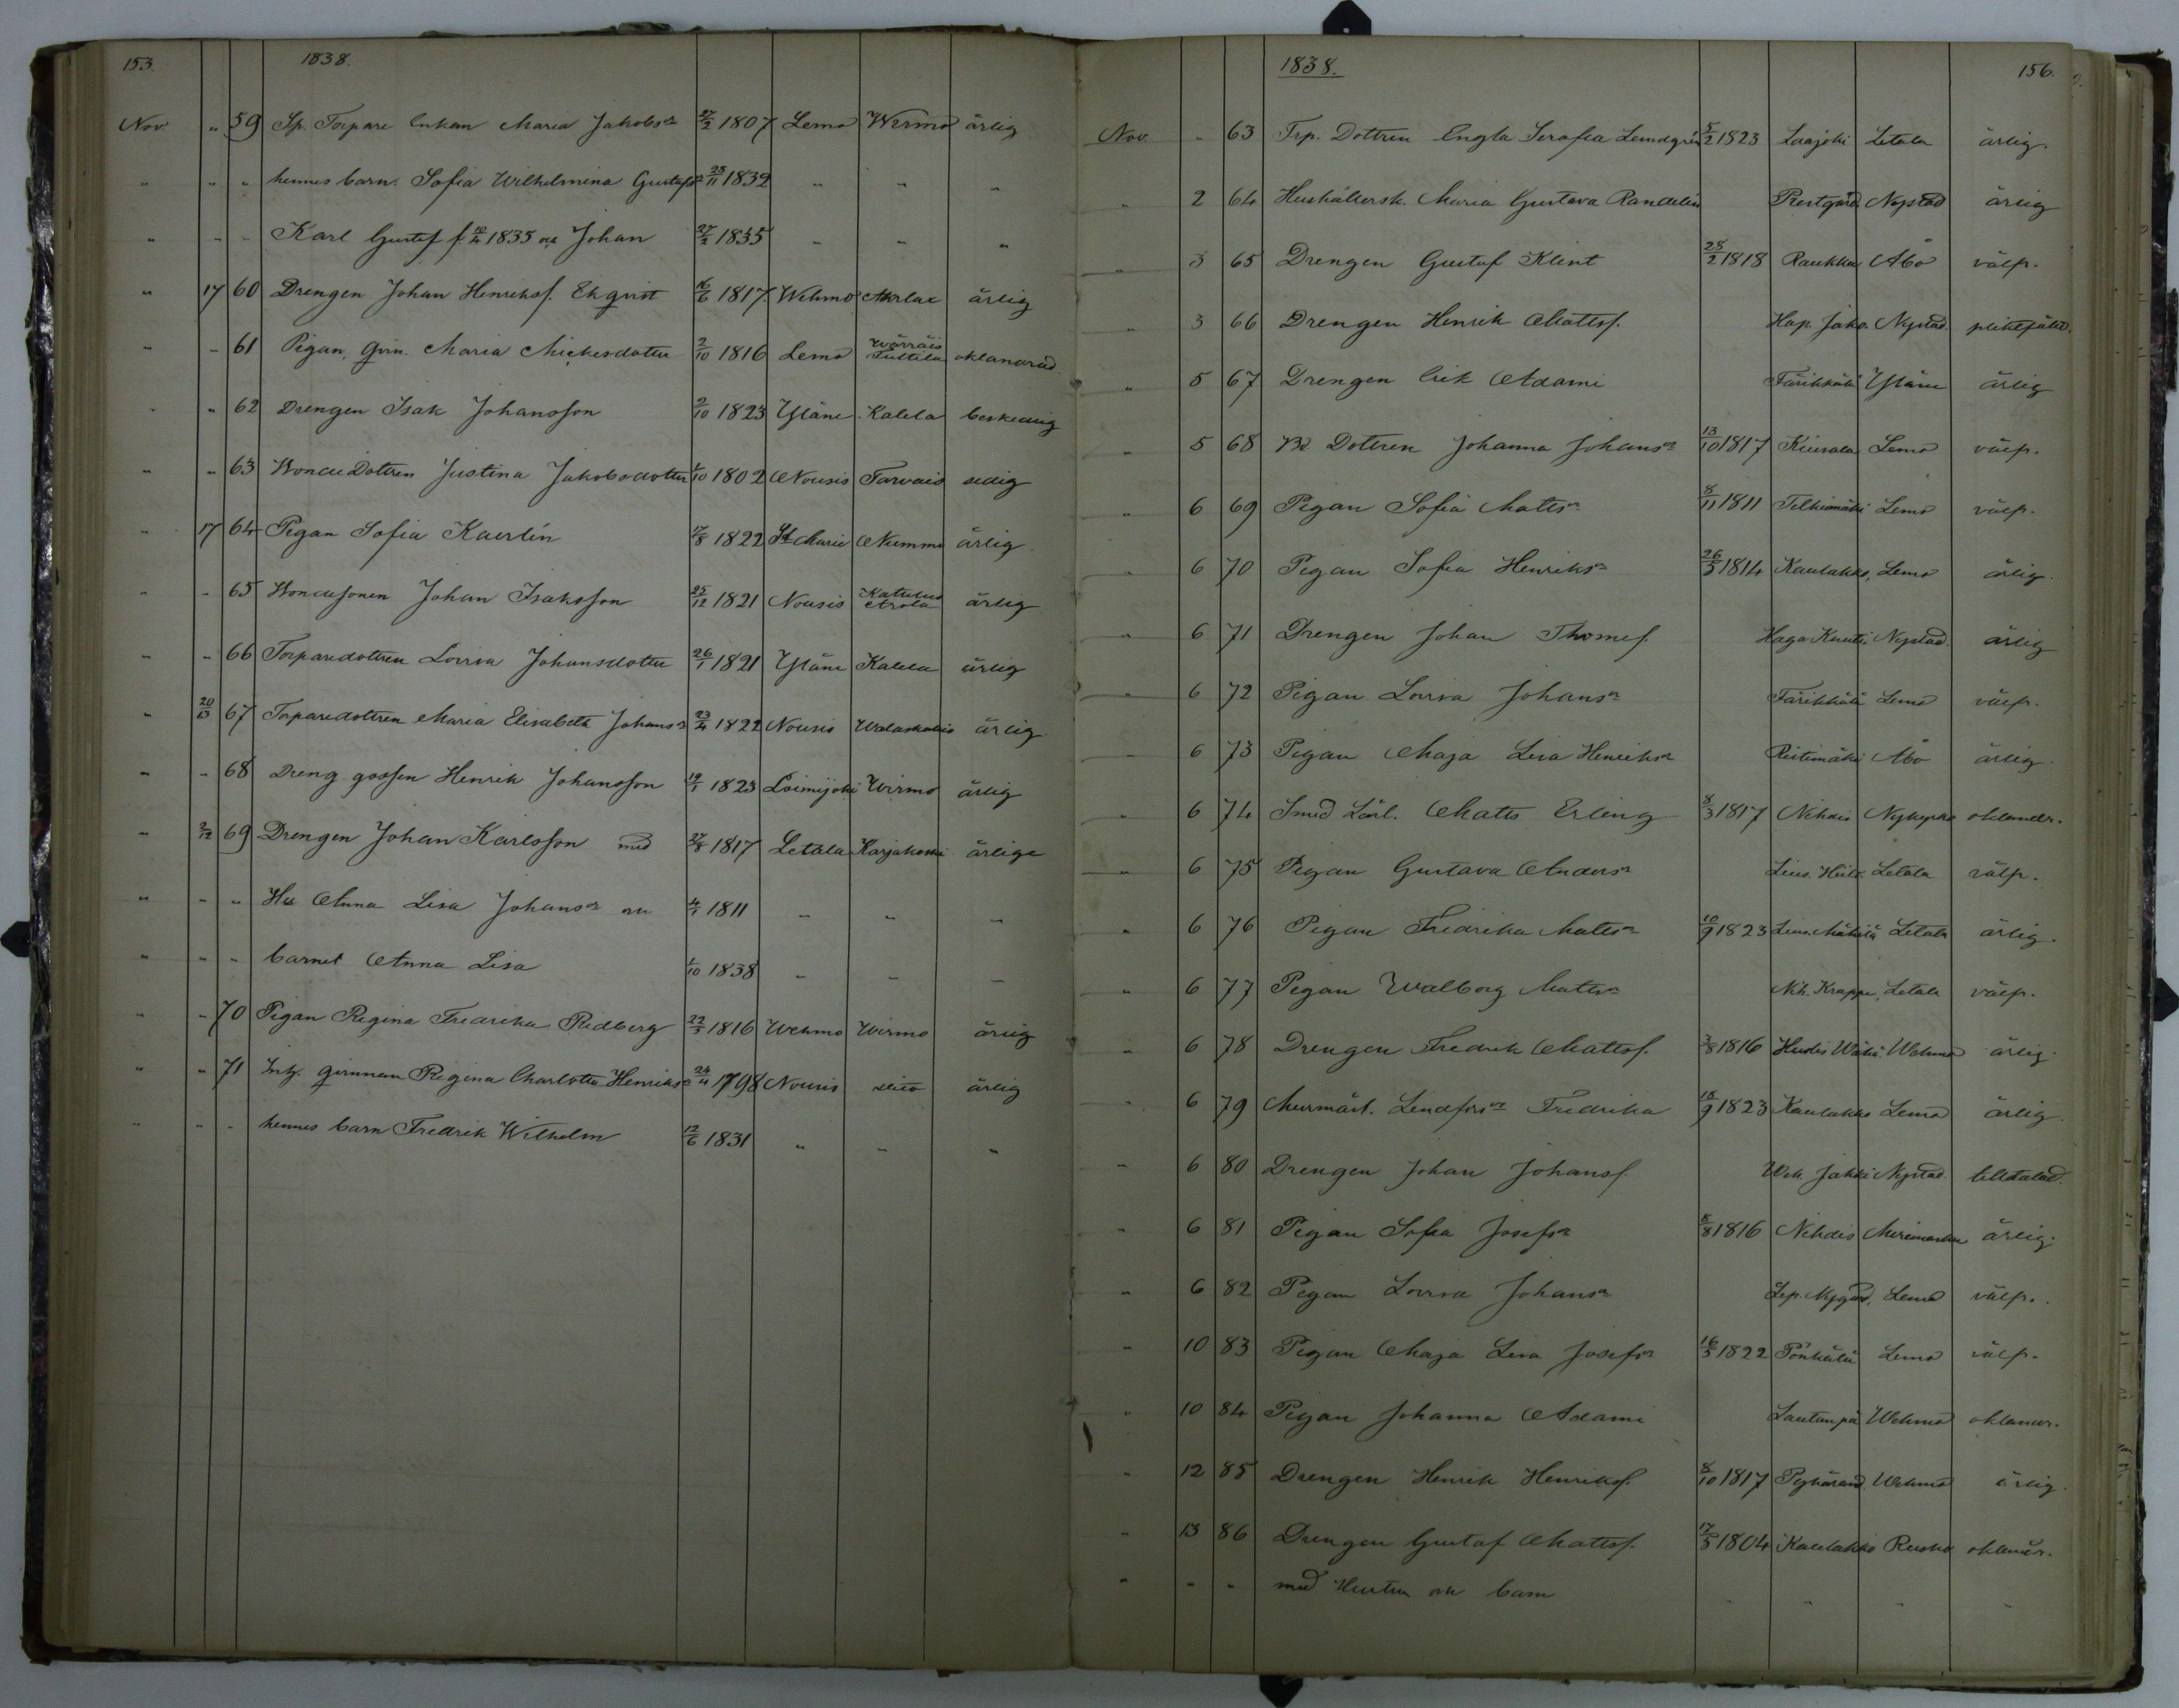 153. 1838.
Nov. " 59 Sp. Torpare Enkan Maria Jakobsdr 27/2 1807 Lemo Wirmo ärlig
" " " hennes barn. Sofia Wilhelmina Gustafsdr 25/11 1832 " " "
" " " Karl Gustaf f. 1835 och Johan 27/2 1835 " " "
" 17 60 Drengen Johan Henriksf. Ekqvist 16/6 1817 Wehmo ärlig
" " 61 Pigan, qvin. Maria Mickesdotter 2/10 1816 Lemo Wärräis Tultila oklandrad
" " 62 Drengen Isak Johansson 2/10 1823 Yläne Kalela beskedlig
" " 63 Bonde Dottren Justina Jakobsdotter 1/10 1802 Nousis Tarvais sedig
" 17 64 Pigan Sofia Kaerlén 17/8 1822 St Marie Nummo ärlig
" " 65 Bondesonen Johan Isaksson 25/12 1821 Nousis ärlig
" " 66 Torparedottren Lovisa Johansdotter 26/1 1821 Yläne Kalela ärlig
" 20/13 67 Torparedottren Maria Elisabeth Johansdr 23/4 1822 Nousis ärlig
" " 68 Dreng gossen Henrik Johansson 19/1 1823 Loimijoki Wirmo ärlig
" 2/12 69 Drengen Johan Karlsson med 27/8 1817 Letala Karjakoski ärlige
" " " Hu Anna Lisa Johansdr och 4/1 1811 " " "
" " " barnet Anna Lisa 1/10 1838 " " "
" " 70 Pigan Regina Fredrika Ridberg 22/3 1816 Wehmo Wirmo ärlig
" " 71 Inh. qvinnan Regina Charlotta Henriksdr 24/4 1798 Nousis dito ärlig
" " " hennes barn Fredrik Wilhelm 12/6 1831 " " "
1838. 156.
Nov. " 63 Trp. Dottren Engla Serafia Lemdgrén 5/2 1823 Laajoki Letala ärlig.
" 2 64 Hushållersk. Maria Gustava Randelin Prestgård Nystad ärlig
" 3 65 Drengen Gustaf Klint 28/2 1818 Raukka Åbo välfr.
" 3 66 Drengen Henrik Mattsf. Hap. Jako. Nystad
" 5 67 Drengen Erik Adami Färikkälä Yläne ärlig
" 5 68 Bd Dottren Johanna Johansdr 13/10 1817 Kiusala Lemo välfr.
" 6 69 Pigan Sofia Mattsdr 8/11 1811 Telkiomäki Lemo välfr.
" 6 70 Pigan Sofia Henriksdr 26/3 1814 Kaulakko, Lemo ärlig
" 6 71 Drengen Johan Thomef. Haga Knuti Nystad. ärlig
" 6 72 Pigan Lovisa Johansdr Färikkälä Lemo välfr.
" 6 73 Pigan Maja Lisa Henriksdr Ristimäki Åbo ärlig.
" 6 74 Smed Lärl. Matts Erling 8/3 1817 Nihdis Nykyrko oklandr.
" 6 75 Pigan Gustava Andersdr Letala välfr.
" 6 76 Pigan Fredrika Mattsdr 10/9 1823 Letala ärlig.
" 6 77 Pigan Walborg Mattsdr Nih. Krappe, Letala välfr.
" 6 78 Drengen Fredrik Mattsf. 3/8 1816 Wehmo ärlig.
" 6 79 Murmäst. Lindforsdr Fredrika 10/9 1823 Kaulakko Lemo ärlig
" 6 80 Drengen Johan Johansf. Weh. Jakki Nystad.
" 6 81 Pigan Sofia Josefsdr 8/8 1816 Nihdis Merimasku ärlig.
" 6 82 Pigan Lovisa Johansdr Lep. Nygård. Lemo välfr.
" 10 83 Pigan Maja Lisa Josefsdr 16/3 1822 Pönkälä Lemo välfr.
" 10 84 Pigan Johanna Adami Wehmo oklandr.
" 12 85 Drengen Henrik Henriksf. 8/10 1817 Wehmo ärlig.
" 13 86 Drengen Gustaf Mattsf. 17/3 1804 Kaulakko Rusko oklandr.
" " " med Hustru och barn " " "